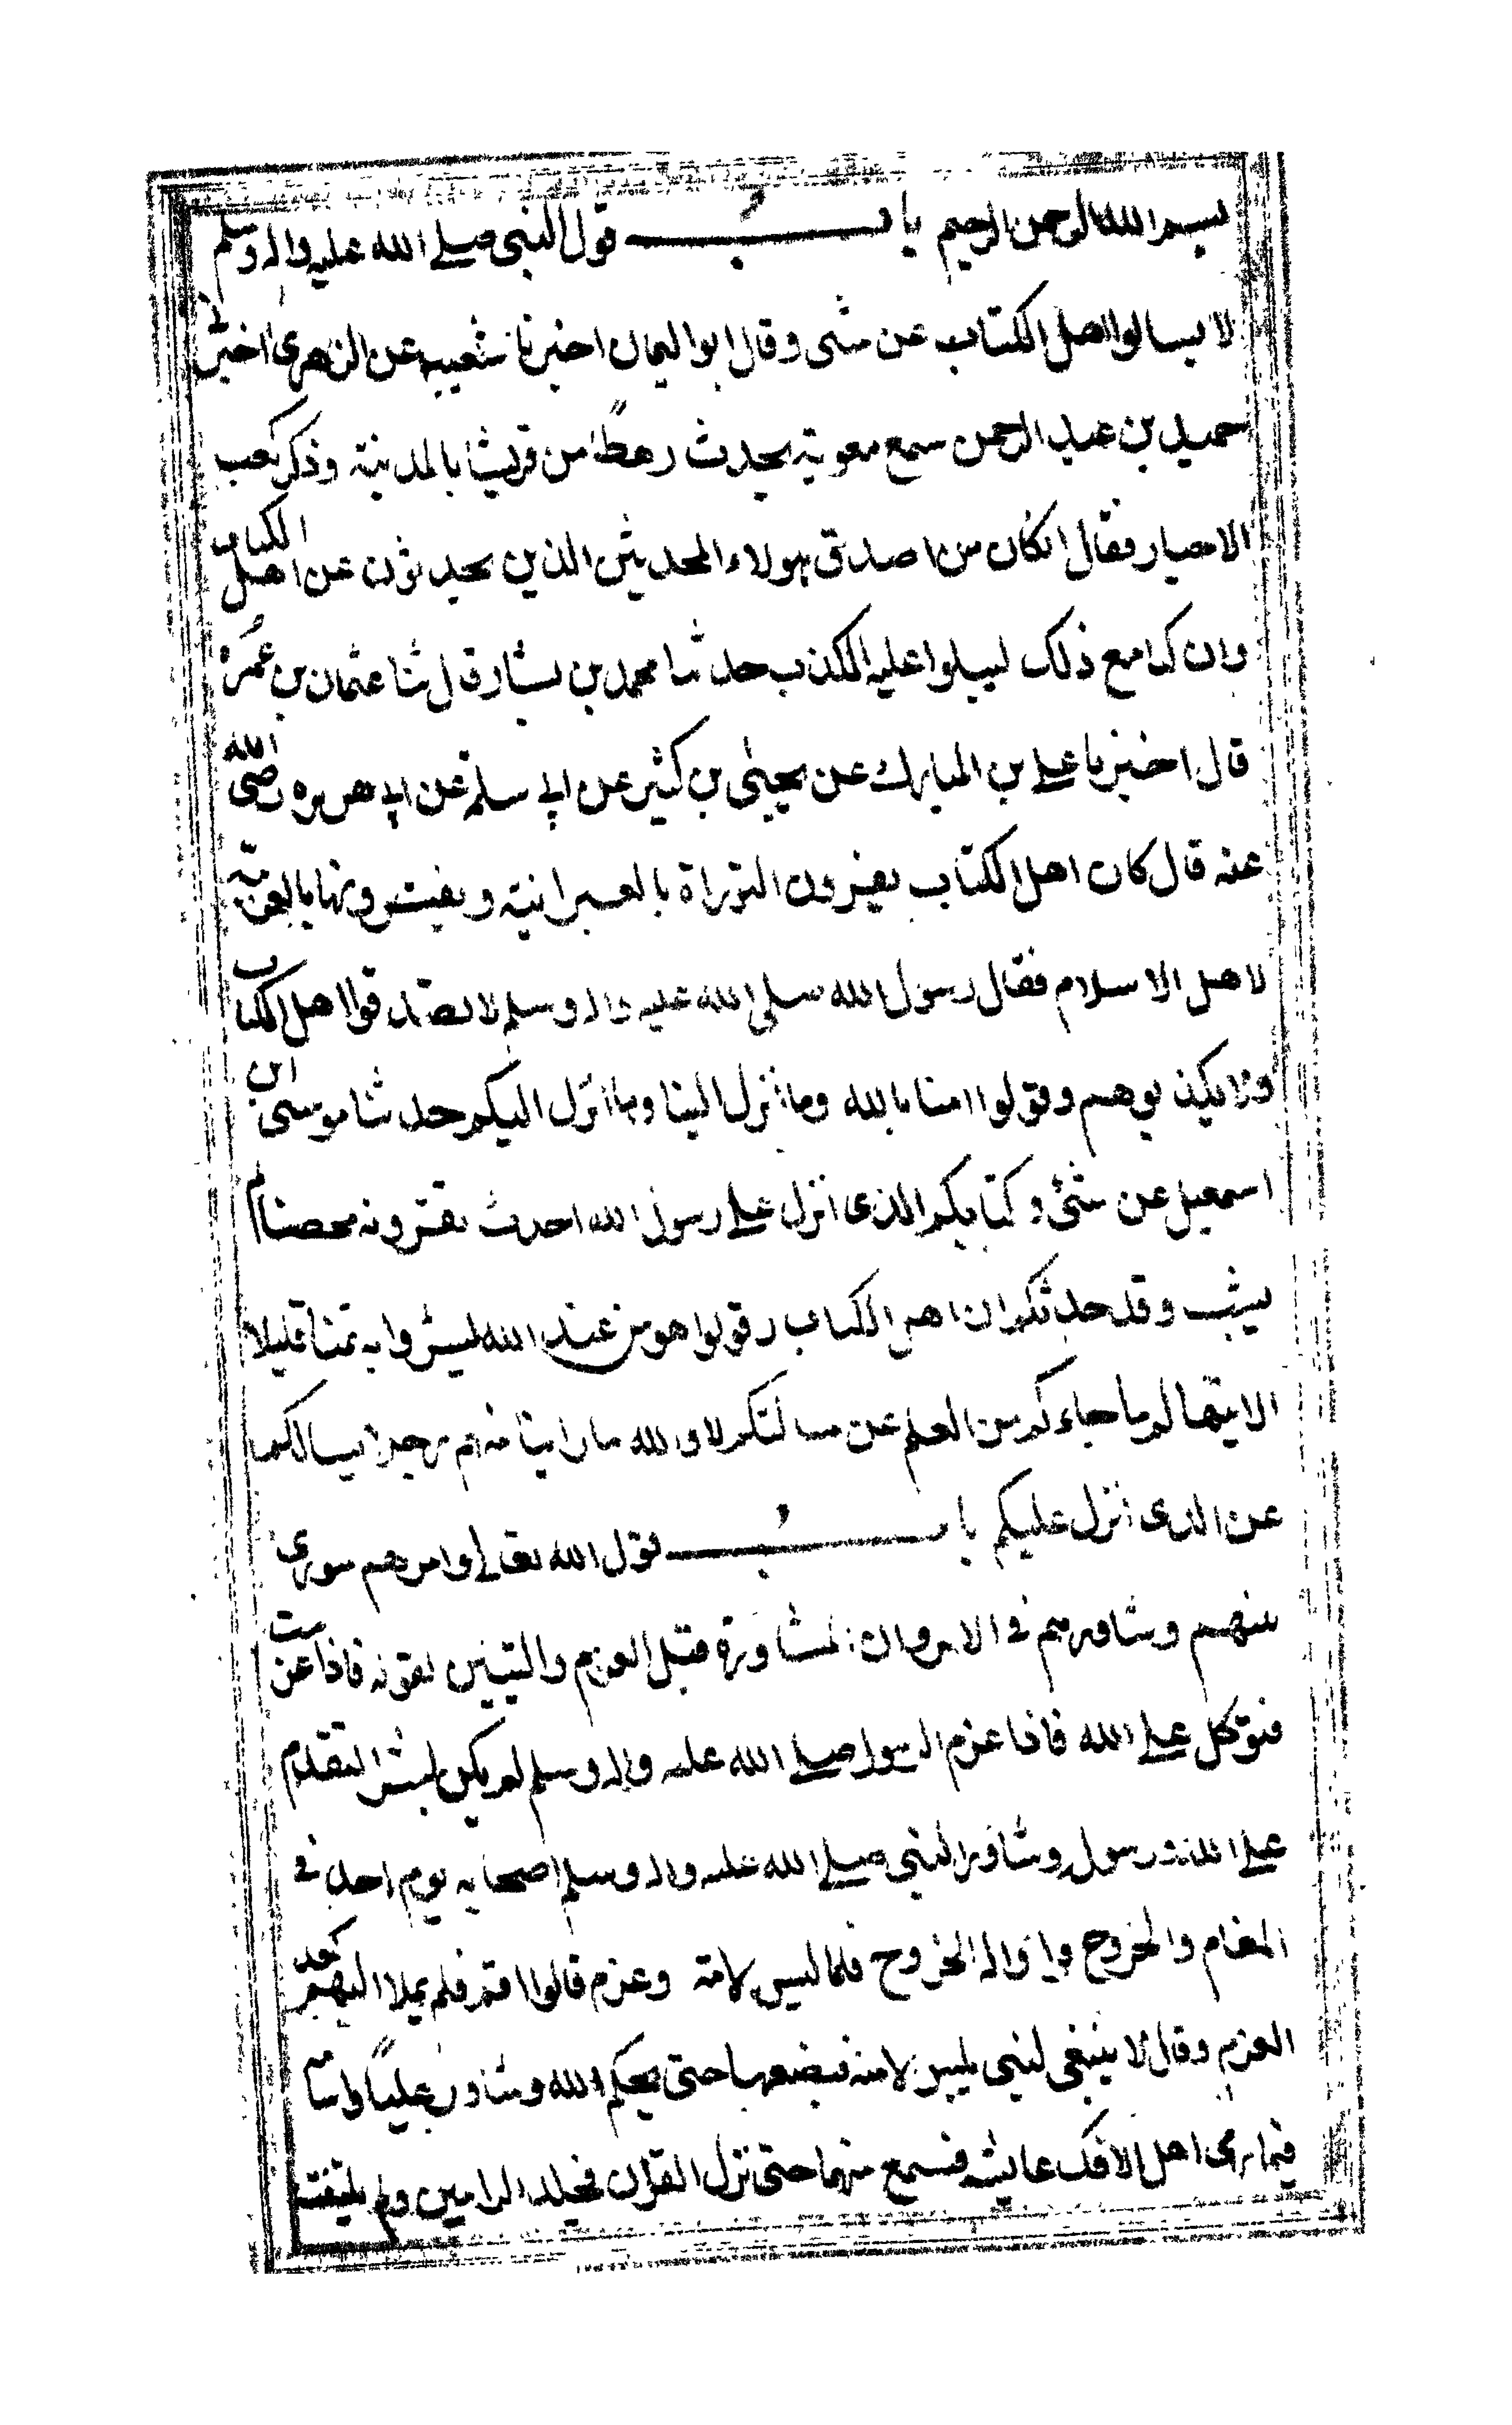 بسم الله الرحمن الرحيم باب قول النبى صلى الله عليه واله وسلم
لا يسالوا اهل الكتاب عن شى وقال ابو اليمان اخبرنا شعيب عن الزهرى اخبرنى
حميد بن عبد الرحمن سمع معوية يحدث رهطًا من قريش بالمدينة وذكر كعب
الاحبار فقال انكان من اصدق هولاء المحدثين الذين يحدثون عن اهل الكتاب
وان كنا مع ذلك ليبلوا عليه الكذب حدثنا محمد بن بشار قال ثنا عثمان بن عُمَر
قال اخبرنا على بن المبارك عن يحيى بن كثير عن ابى سلمة عن ابى هريره رضى الله
عنه قال كان اهل الكتاب يقرون التوراة بالعبرانية ويفسرونها بالعربية
لاهل الاسلام فقال رسول الله صلى الله عليه واله وسلم لا تصدقوا اهل الكتاب
ولا تكذبوهم وقولوا امنا بالله وما انزل الينا وما انزل اليكم حدثنا موسى ابن
اسمعيل عن شئ وكتابكم الذى انزل على رسول الله احدث تقرونه محضا لم
يشب وقد حدثكم ان اهل الكتاب وقولوا هو من عند الله ليشروا به ثمنا قليلا
الا ينهاكم ما جاءكم من العلم عن مسالتكم لا والله ما راينا منهم رجلا يسالكم
عن الذى انزل عليكم باب قول الله تعالى وامرهم شورى
بينهم وشاورهم فى الامر وان المشاورة قبل العزم والتبين لقوله فاذا عزمت
فتوكل على الله فاذا عزم الرسول صلى الله عليه واله وسلم لم يكن لبشر التقدم
على الله ورسوله وشاور النبى صلى الله عليه واله وسلم اصحابه يوم احد فى
المقام والخروج فراوا له الخروج فلما لبس لامته وعزم قالوا اقم فلم يمل اليهم بعد
العزم وقال لا ينبغى لنبى يلبس لامته فيضعها حتى يحكم الله وشاور عليًا واسامه
فيما رمى اهل الافك عايشه فسمع منهما حتى نزل القرآن فجلد الرامين ولم يلتفت